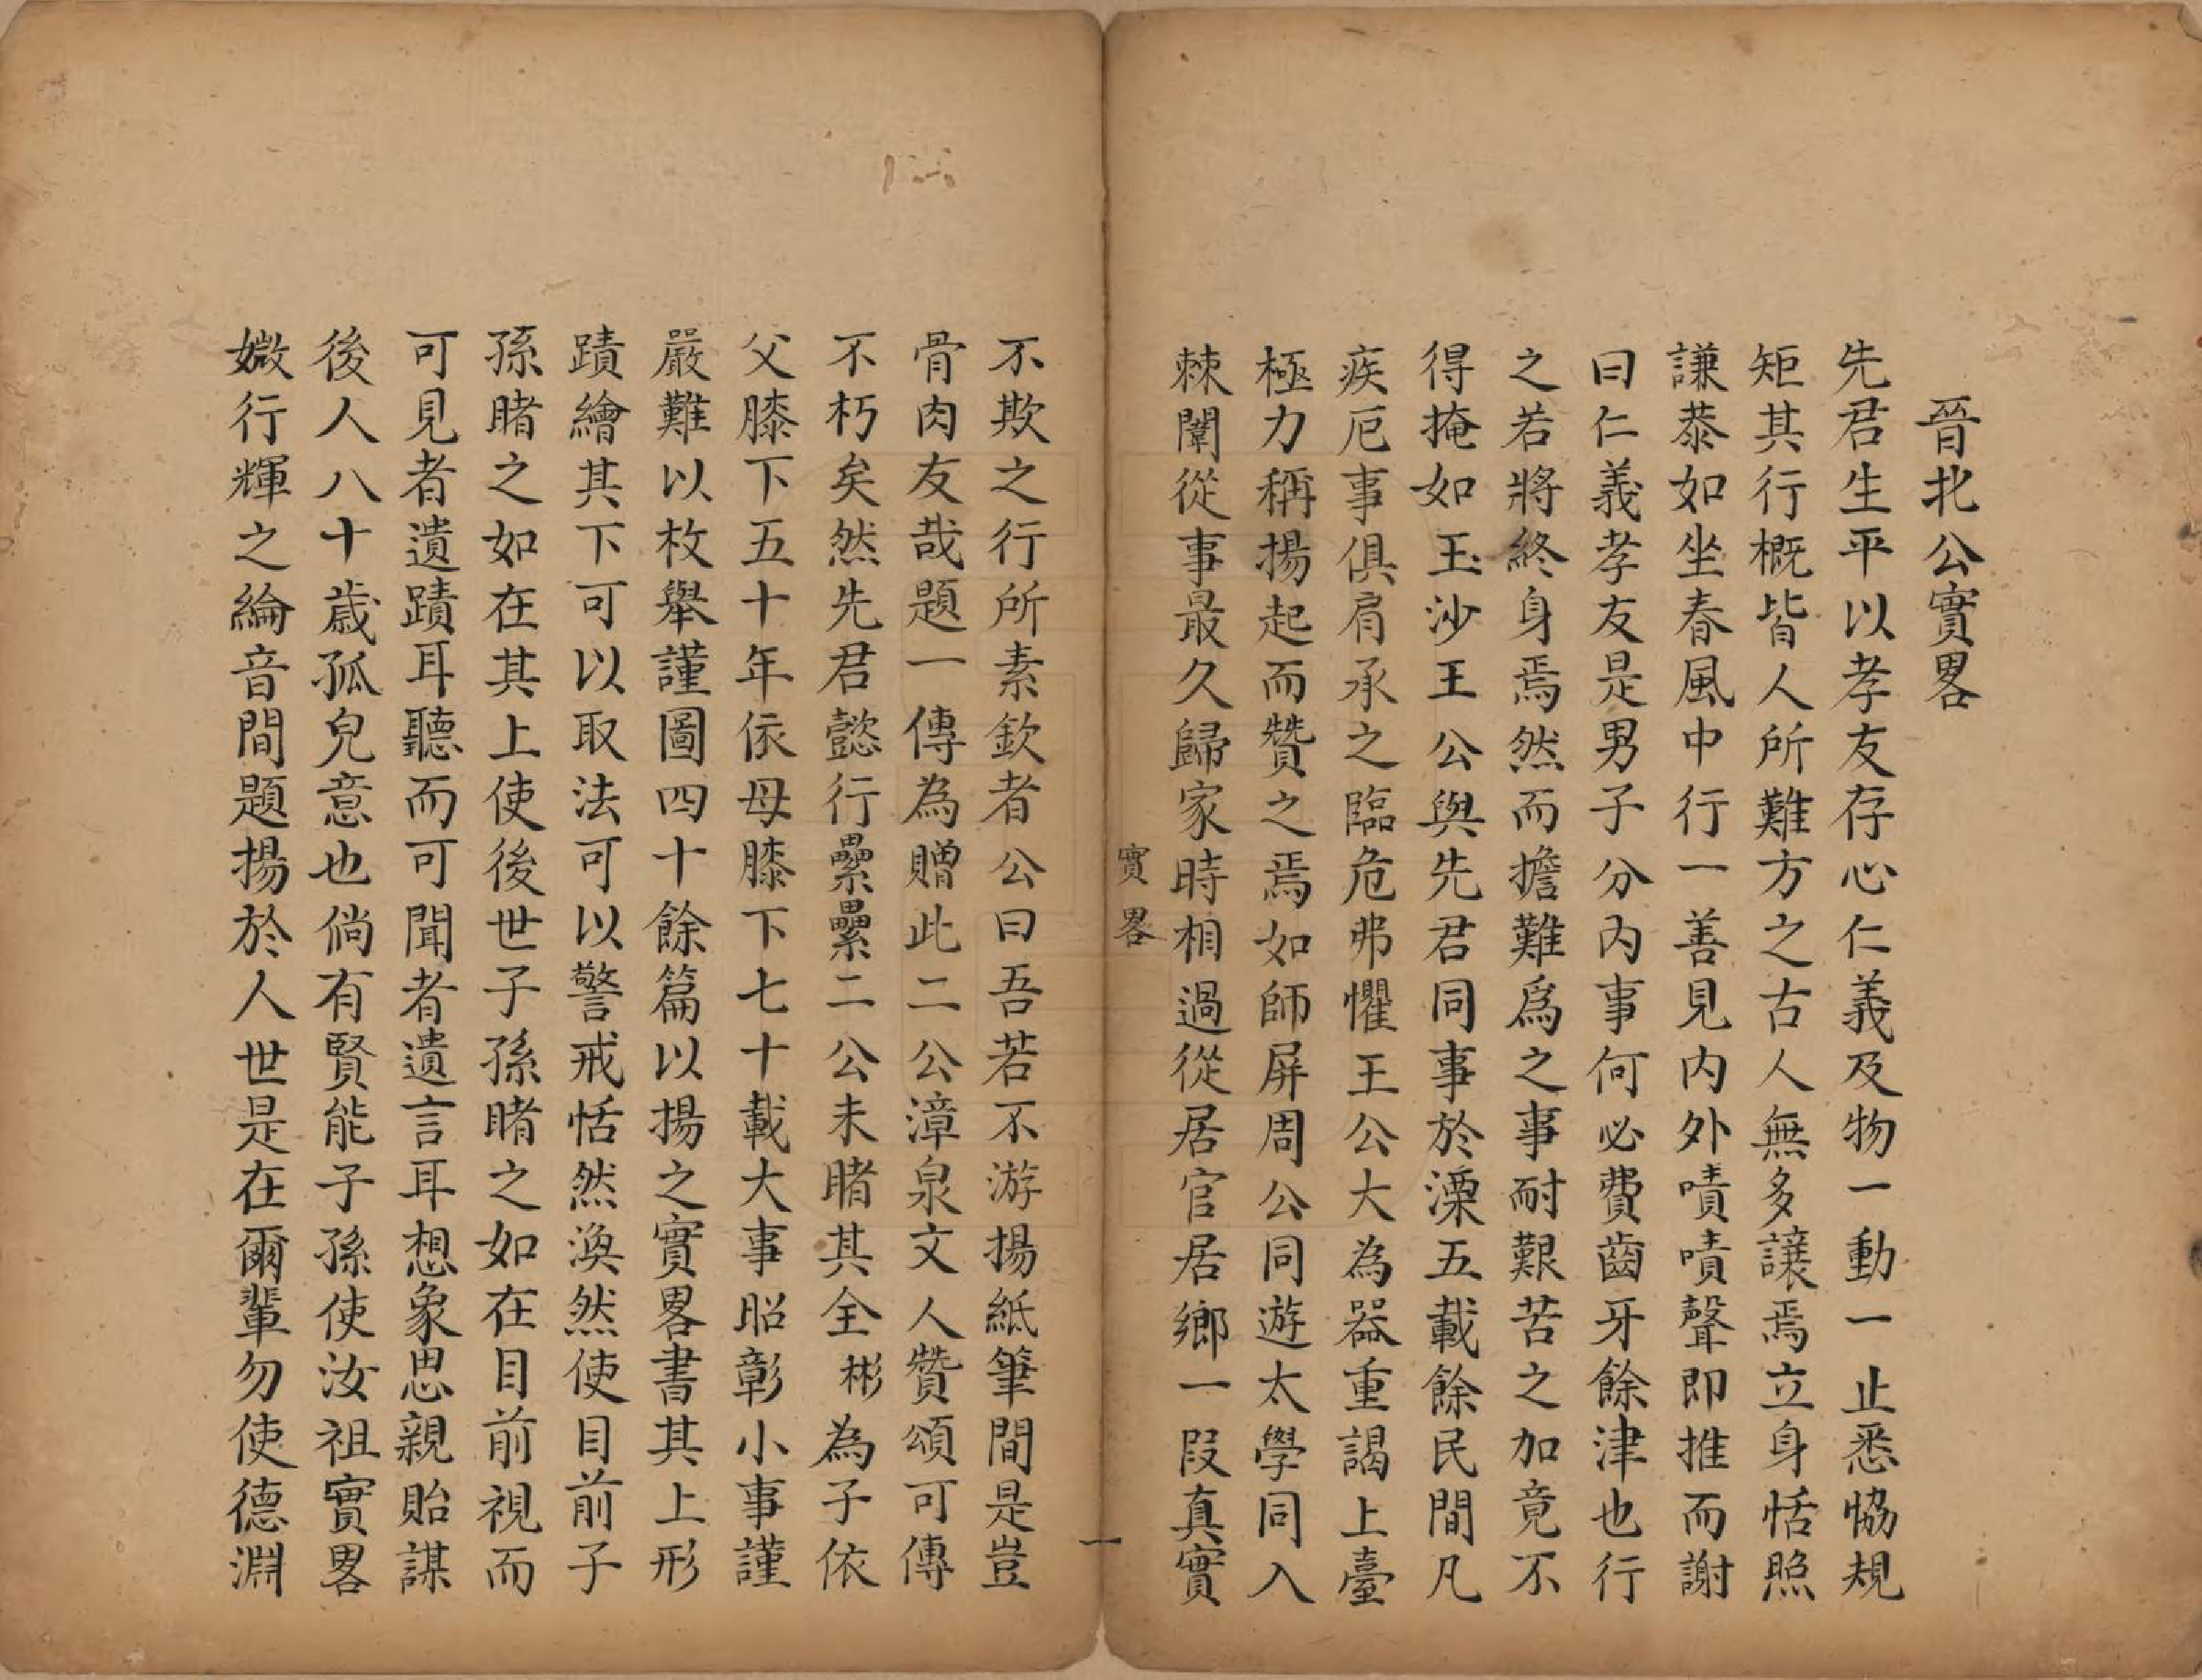 晉北公實畧
先君生平以孝友存心仁義及物一動一止悉恊規
矩其行概皆人所難方之古人無多讓焉立身恬照
謙㳟如坐春風中行一善見内外嘖嘖聲即推而謝
曰仁義孝友是男子分内事何必費齒牙餘津也行
之若將終身焉然而擔難爲之事耐艱苦之加竟不
得掩如玉沙王公與先君同事於溧五載餘民間凡
疾厄事俱肩承之臨危弗懼王公大為器重謁上臺
極力稱揚起而贊之焉如師屏周公同遊太學同入
棘闈從事最久歸家時相過從居官居鄉一段真實
實畧
一
不欺之行所素欽者公曰吾若不游揚紙筆間是豈
骨肉友哉題一傳為贈此二公漳泉文人贊頌可傳
不朽矣然先君懿行纍纍二公未睹其全彬為子依
父膝下五十年依母膝下七十載大事昭彰小事謹
嚴難以枚舉謹圖四十餘篇以揚之實畧書其上形
蹟繪其下可以取法可以警戒恬然渙然使目前子
孫睹之如在其上使後世子孫睹之如在目前視而
可見者遺蹟耳聽而可聞者遺言耳想象思親貽謀
後人八十歲孤兒意也倘有賢能子孫使汝祖實畧
媺行輝之綸音間題揚於人世是在爾輩勿使德淵